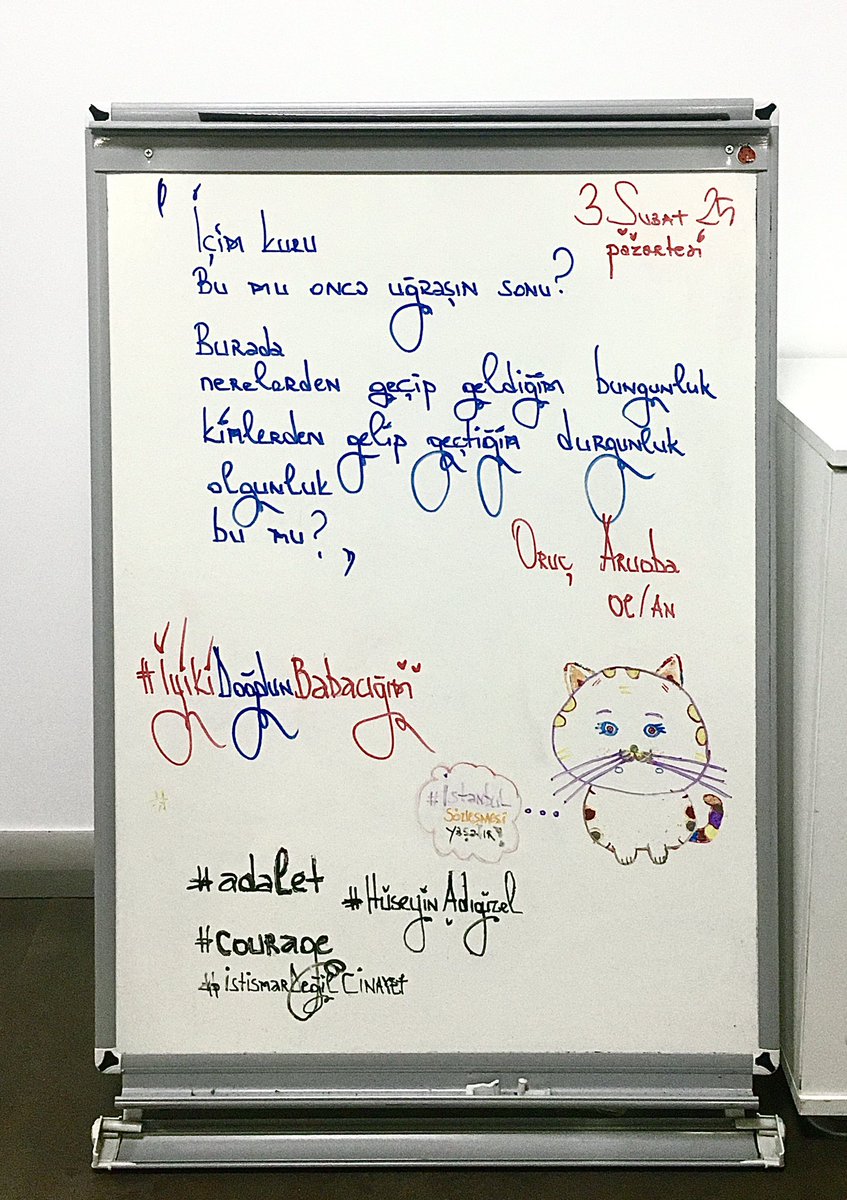 3 Şubat 25
pazartesi
" İçim kuru
Bu mu onca uğraşın sonu?
Burada
nerelerden geçip geldiğim bungunluk
kimlerden gelip geçtiğim durgunluk
olgunluk
bu mu? "
Oruç Aruoba
OL/AN
#İyikiDoğdunBabacığım
#İstanbul
Sözleşmesi
Yaşatır!
#adalet
#HüseyinAdıgüzel
#courage
#istismarDeğilCinayet